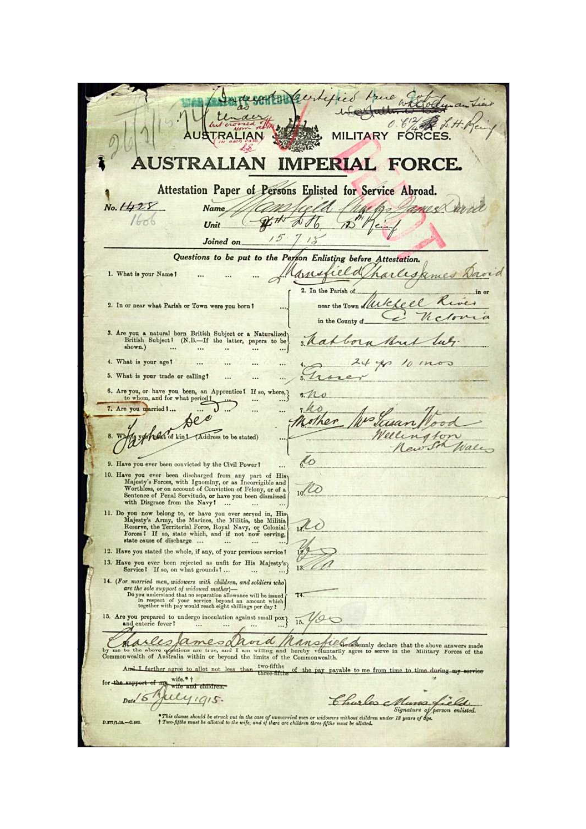 WAR GRATUITY SCHEDULE
Certified true
under
AUSTRALIAN MILITARY FORCES.
AUSTRALIAN IMPERIAL FORCE.
Attestation Paper of Persons Enlisted for Service Abroad.
No. 1428 Name Mansfield Charles James David
1606
Unit
Joined on 15 7 15
Questions to be put to the Person Enlisting before Attestation.
1. What is your Name? ... ... ... Mansfield Charles James David
2. In or near what Parish or Town were you born? ... 2. In the Parish of in or
near the Town Mitchell River
in the County of Victoria
3. Are you a natural born British Subject or a Naturalized
British Subject? (N.B.—If the latter, papers to be
shown.) 3. Nat born Brit Sub.
4. What is your age? ... ... ... 4. 24 yrs 10 mos
5. What is your trade or calling? ... ... 5.
6. Are you, or have you been, an Apprentice? If so, where,
to whom, and for what period? 6. No
7. Are you married? ... ... 7. No
Father Dec
8. Who is your next of kin? (Address to be stated) Mother Mrs Susan Wood
Wellington
New Sth Wales
9. Have you ever been convicted by the Civil Power? ... 9. No
10. Have you ever been discharged from any part of His
Majesty's Forces, with Ignominy, or as Incorrigible and
Worthless, or on account of Conviction of Felony, or of a
Sentence of Penal Servitude, or have you been dismissed
with Disgrace from the Navy? ... ... 10. No
11. Do you now belong to, or have you ever served in, His
Majesty's Army, the Marines, the Militia, the Militia
Reserve, the Territorial Force, Royal Navy, or Colonial
Forces? If so, state which, and if not now serving,
state cause of discharge ... ... 11. No
12. Have you stated the whole, if any, of your previous service? 12. Yes
13. Have you ever been rejected as unfit for His Majesty's
Service? If so, on what grounds? ... ... 13. No
14. (For married men, widowers with children, and soldiers who
are the sole support of widowed mother)—
Do you understand that no separation allowance will be issued
in respect of your service beyond an amount which
together with pay would reach eight shillings per day? 14.
15. Are you prepared to undergo inoculation against small pox
and enteric fever? 15. Yes
Charles James David Mansfield do solemnly declare that the above answers made
by me to the above questions are true, and I am willing and hereby voluntarily agree to serve in the Military Forces of the
Commonwealth of Australia within or beyond the limits of the Commonwealth.
And I further agree to allot not less than two-fifths three-fifths of the pay payable to me from time to time during my service
for the support of my wife.*† wife and children.
Date 15 July 1915. Charles Mansfield
Signature of person enlisted.
* This clause should be struck out in the case of unmarried men or widowers without children under 18 years of age.
† Two-fifths must be allotted to the wife, and if there are children three-fifths must be allotted.